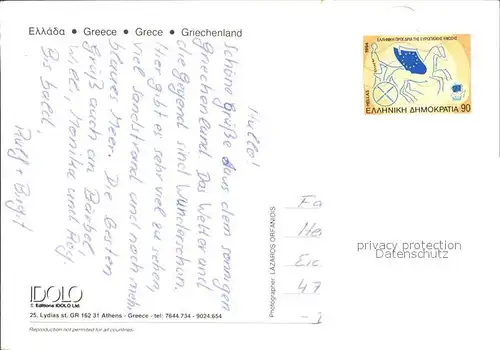 Ελλάδα • Greece • Grece • Griechenland
Hallo!
Schöne Grüße aus dem sonnigen
Griechenland. Das Wetter und
die Gegend sind wunderschön.
Hier gibt es sehr viel zu sehen,
viel Sandstrand und noch mehr
blaues Meer. Die besten
Grüß auch an Bärbel,
Willi, Monika und
Bis bald
Ralf + Birgit
1994
ΕΛΛΗΝΙΚΗ ΠΡΟΕΔΡΙΑ ΤΗΣ ΕΥΡΩΠΑΪΚΗΣ ΕΝΩΣΗΣ
HELLAS
ΕΛΛΗΝΙΚΗ ΔΗΜΟΚΡΑΤΙΑ 90
Photographer: LAZAROS ORFANIDIS
Fa
He
Eic
47
privacy protection
Datenschutz
IDOLO
© Editions IDOLO Ltd.
25, Lydias st. GR 162 31 Athens - Greece - tel: 7644.734 - 9024.654
Reproduction not permitted for all countries.